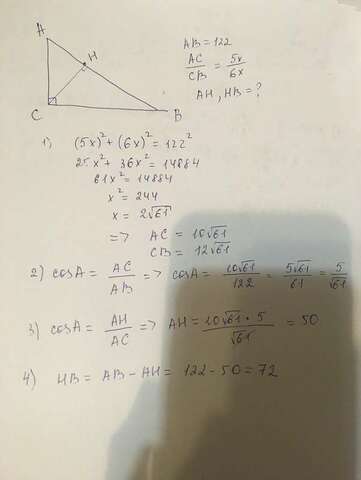 A
H
C
B
AB = 122
AC/CB = 5x/6x
AH, HB = ?
1) (5x)² + (6x)² = 122²
25x² + 36x² = 14884
61x² = 14884
x² = 244
x = 2√61
=> AC = 10√61
CB = 12√61
2) cosA = AC/AB => cosA = 10√61/122 = 5√61/61 = 5/√61
3) cosA = AH/AC => AH = 10√61 · 5/√61 = 50
4) HB = AB - AH = 122 - 50 = 72